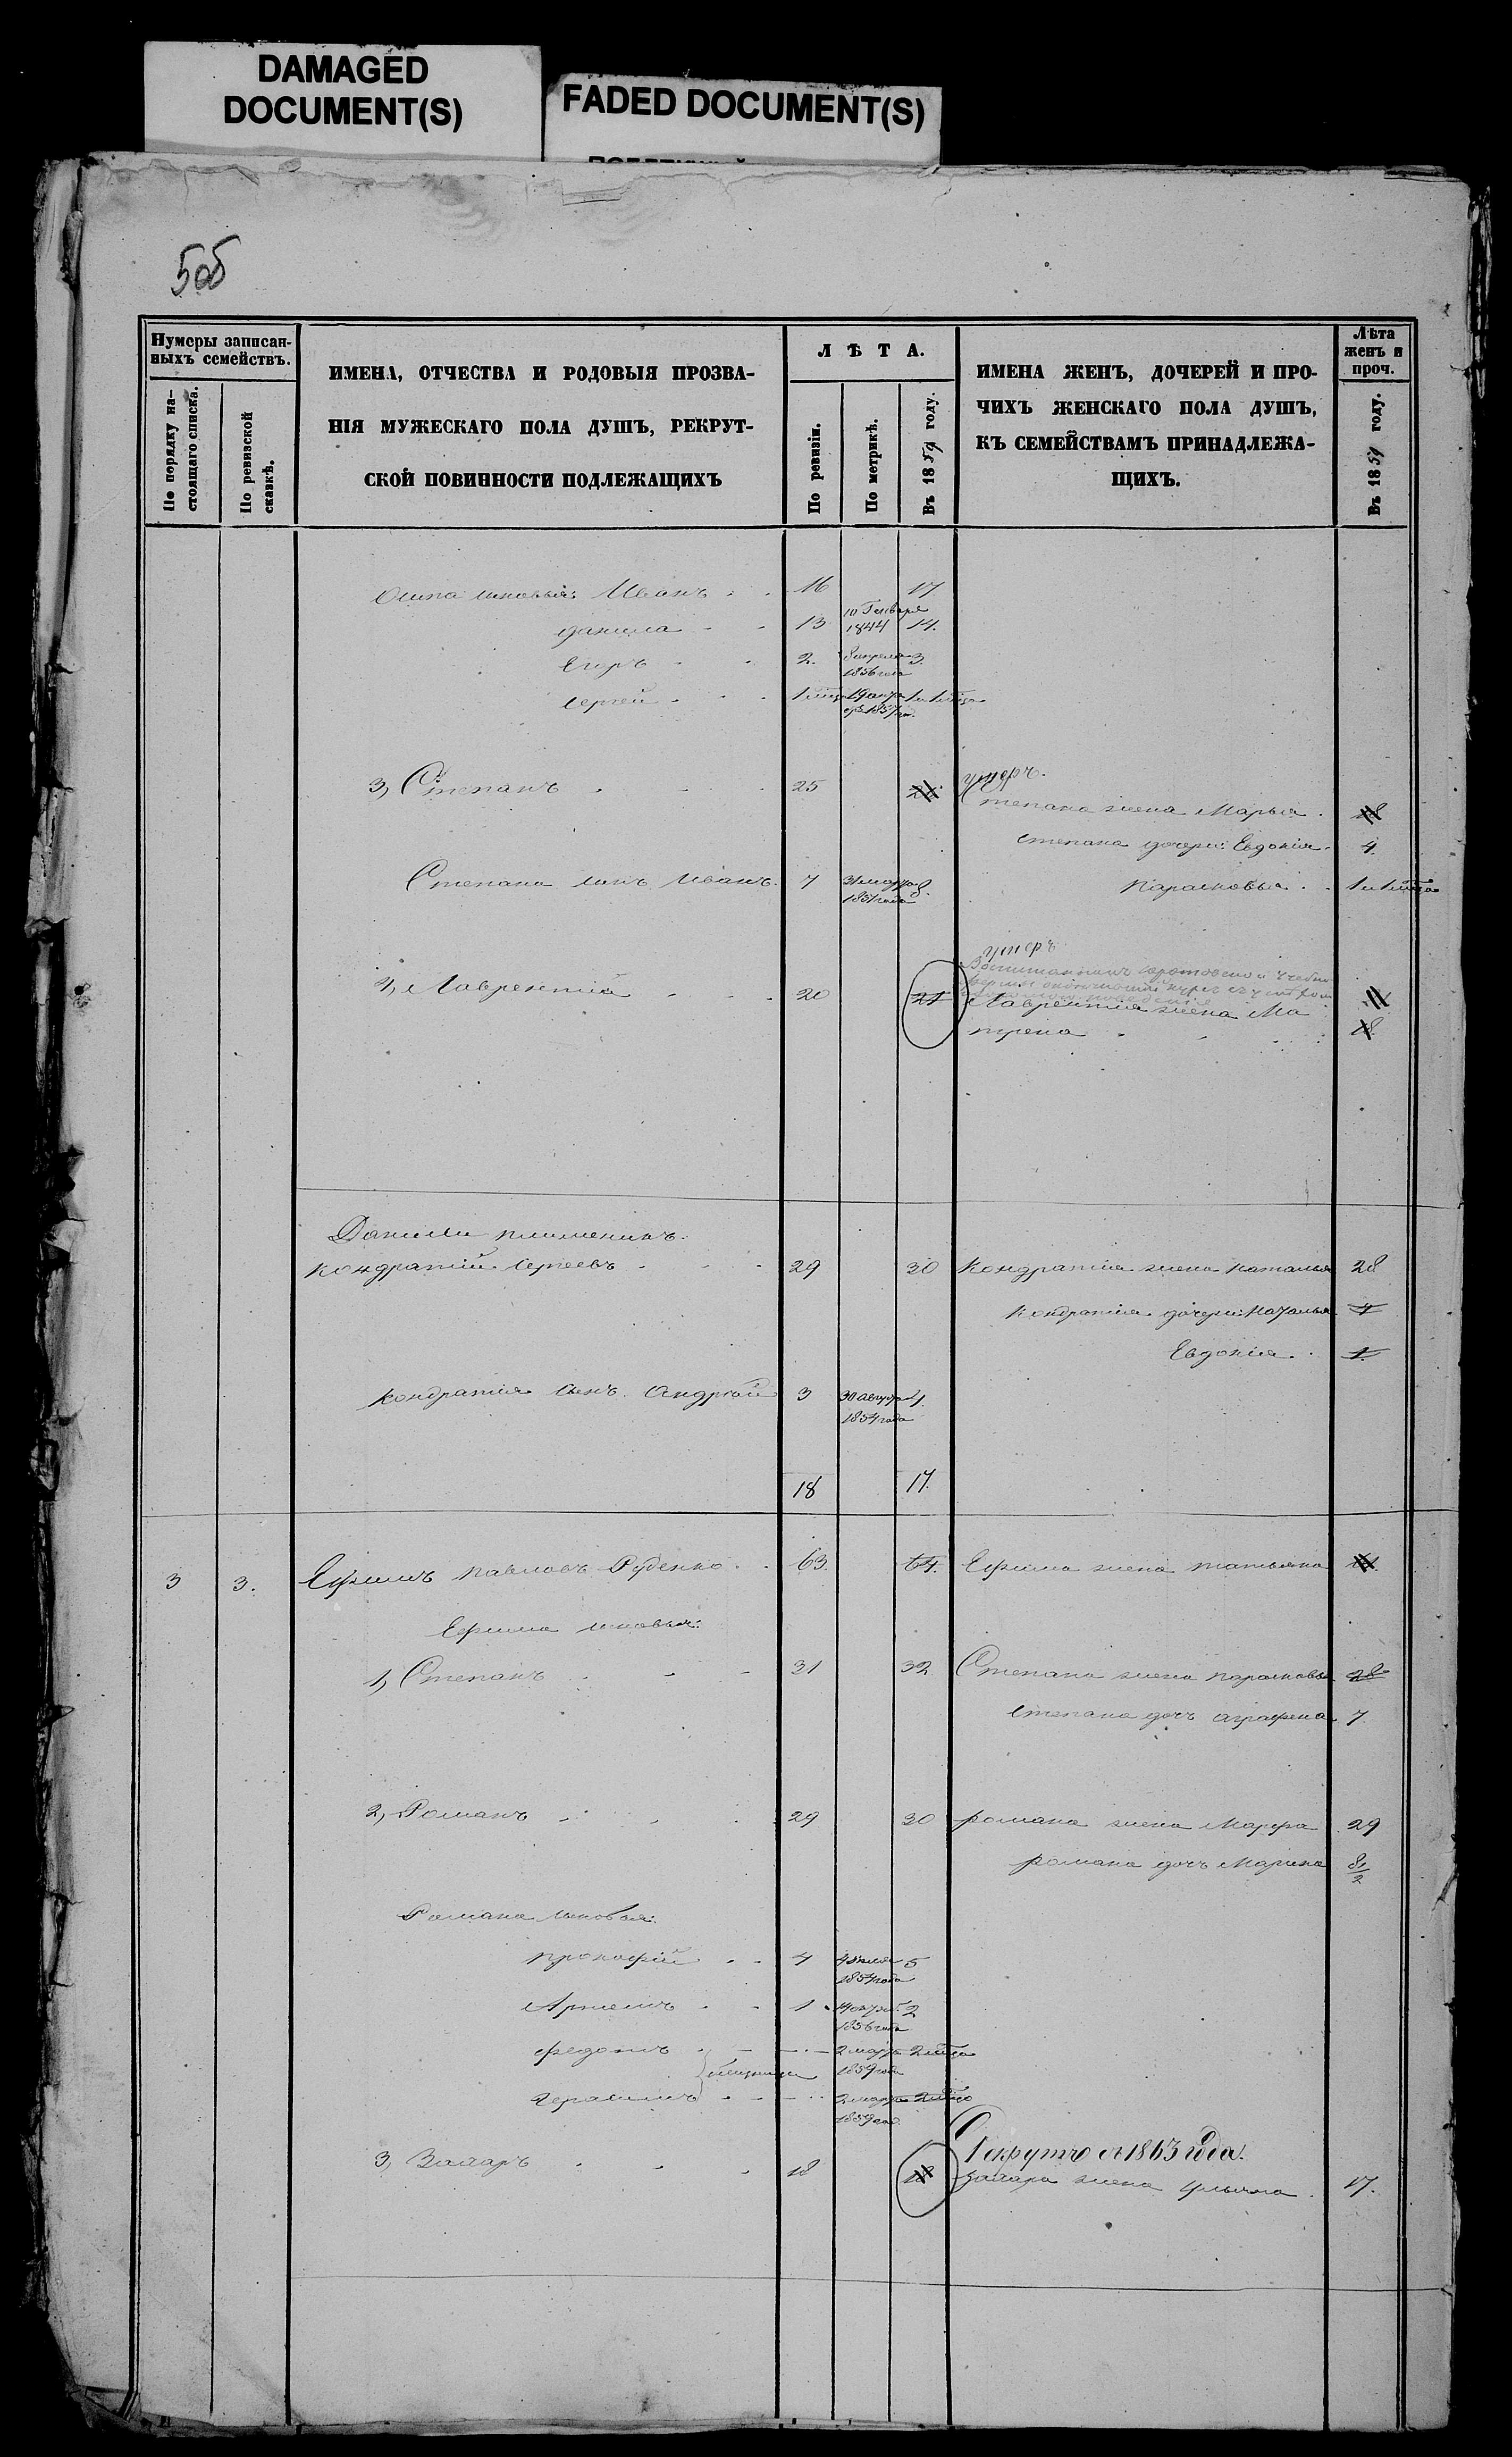 DAMAGED
DOCUMENT(S)
FADED DOCUMENT(S)
5об
Нумеры записан-
ныхъ семействъ.
По порядку на-
стоящаго списка.
По ревизской
сказкѣ.
ИМЕНА, ОТЧЕСТВА И РОДОВЫЯ ПРОЗВА-
НІЯ МУЖЕСКАГО ПОЛА ДУШЪ, РЕКРУТ-
СКОЙ ПОВИННОСТИ ПОДЛЕЖАЩИХЪ
ЛѢТА.
По ревизіи.
По метрикѣ.
Въ 1859 году.
ИМЕНА ЖЕНЪ, ДОЧЕРЕЙ И ПРО-
ЧИХЪ ЖЕНСКАГО ПОЛА ДУШЪ,
КЪ СЕМЕЙСТВАМЪ ПРИНАДЛЕЖА-
ЩИХЪ.
Лѣта
женъ и
проч.
Въ 1859 году.
Осипа сыновья: Иванъ 16 17
Данила 13 10 Генваря 1844 14.
Егоръ 2. 8 апреля 1856 года 3.
Сергей
3, Степанъ 25 умеръ.
Степана жена Марья
Степана дочери: Евдокія 4.
Степана сынъ Иванъ. 7 31 марта 1851 года 8. Парасковья
умеръ
4, Лаврентій 20 21 Лаврентія жена Ма
трена 18
Данилы племеникъ.
Кондратій Сергеевъ 29 30 Кондратія жена Наталья 28
Кондратія дочери: Наталья 4
Евдокія 1.
Кондратія сынъ Андрей 3 30 августа 1854 года 4.
18 17.
3 3. Ефимъ Павловъ Руденко 63. 64. Ефима жена Татьяна
Ефима сыновья:
1, Степанъ 31 32 Степана жена Парасковья 28
Степана дочь Аграфена 7.
2, Романъ 29 30 Романа жена Марфа 29
Романа дочь Марина 8 1/2
Романа сыновья:
Прокофій 4 1854 года 5
Артемъ 1 1856 года 2
Федотъ 2 марта 1859 года
близнецы
Герасимъ 2 марта 1859 год
Рекрутъ с 1863 года.
3, Захаръ 18 18 Захара жена 17.